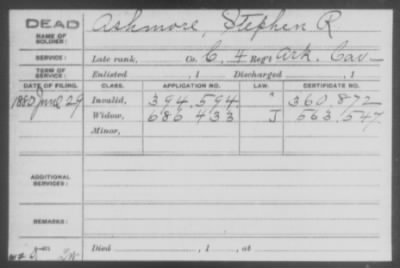 DEAD Ashmore, Stephen R
NAME OF
SOLDIER:
SERVICE: Late rank, Co. C. 4 Reg't Ark. Cav
TERM OF
SERVICE: Enlisted , 1 Discharged , 1
DATE OF FILING. CLASS. APPLICATION NO. LAW. CERTIFICATE NO.
1880 June 29 Invalid, 394.594 360.872
Widow, 686 433 J 563.547
Minor,
ADDITIONAL
SERVICES:
REMARKS:
Died , 1 , at